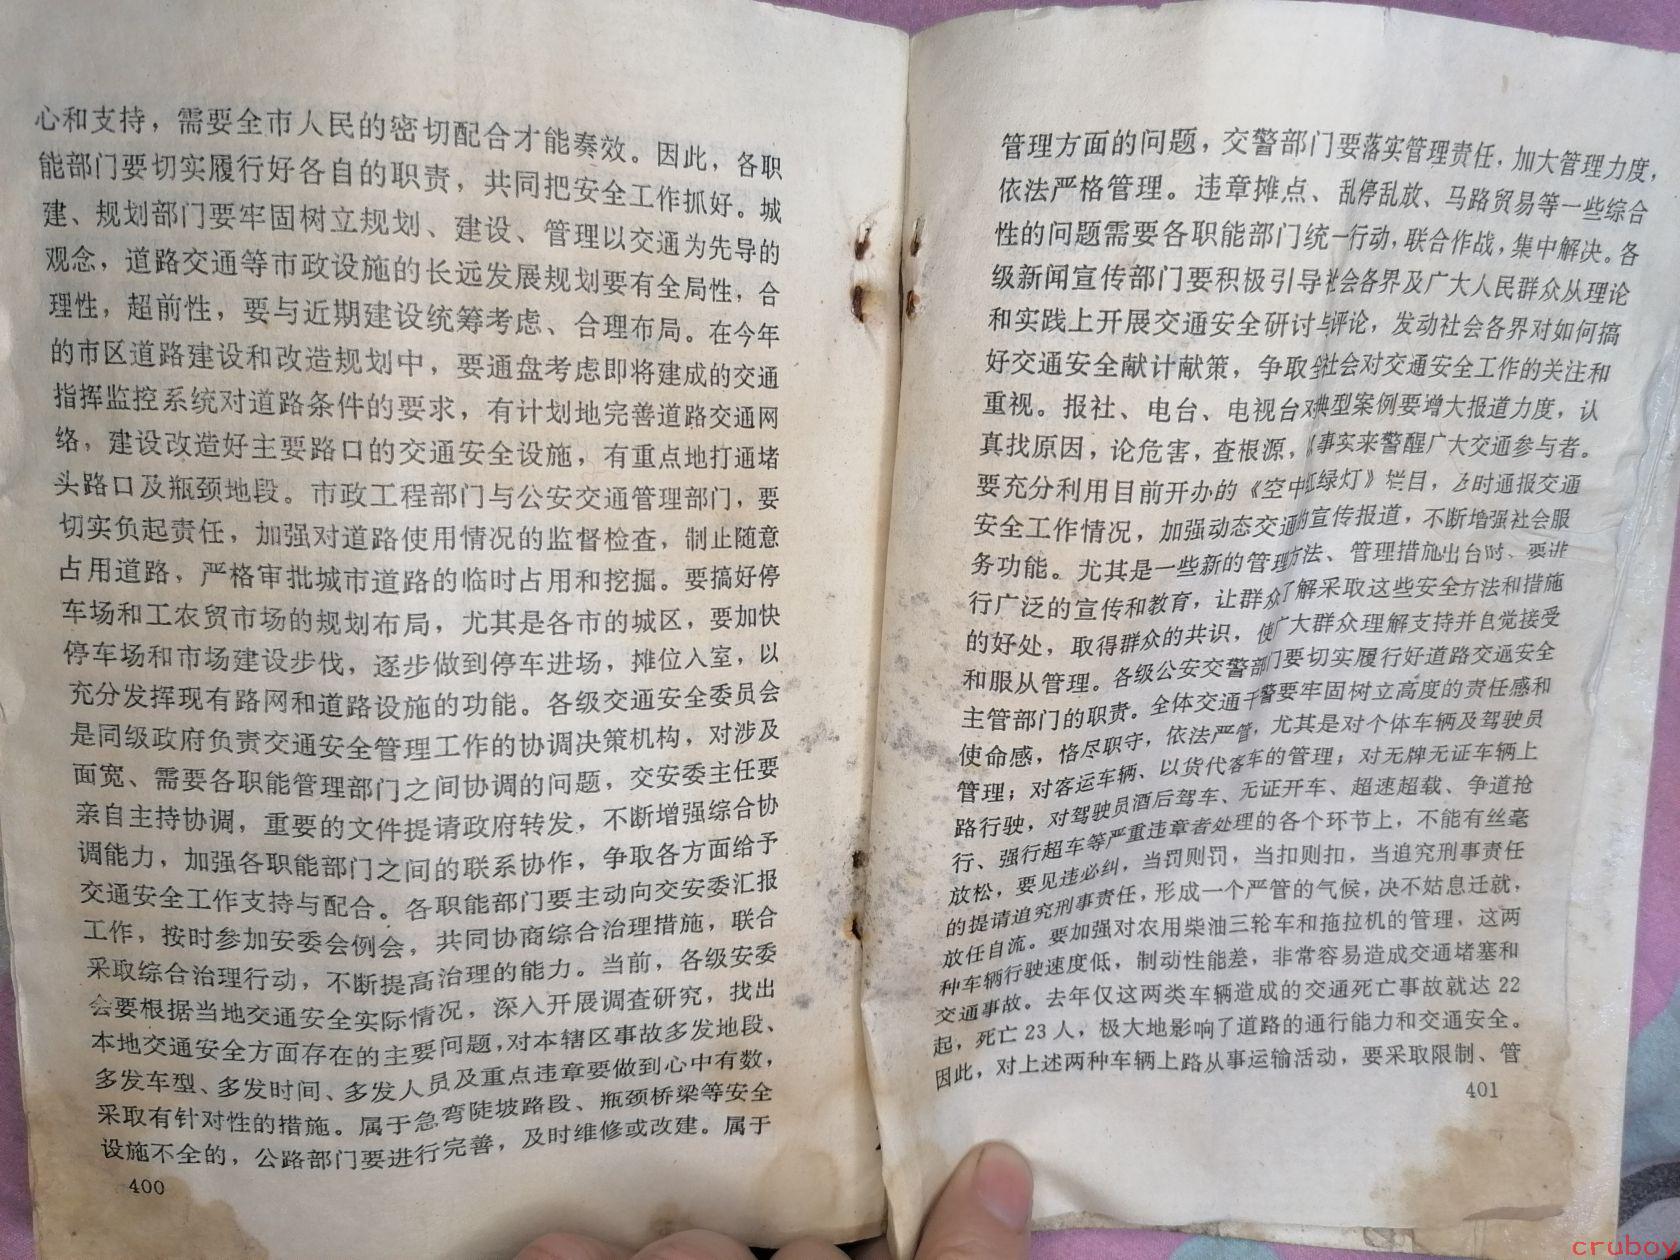 心和支持，需要全市人民的密切配合才能奏效。因此，各职
能部门要切实履行好各自的职责，共同把安全工作抓好。城
建、规划部门要牢固树立规划、建设、管理以交通为先导的
观念，道路交通等市政设施的长远发展规划要有全局性，合
理性，超前性，要与近期建设统筹考虑、合理布局。在今年
的市区道路建设和改造规划中，要通盘考虑即将建成的交通
指挥监控系统对道路条件的要求，有计划地完善道路交通网
络，建设改造好主要路口的交通安全设施，有重点地打通堵
头路口及瓶颈地段。市政工程部门与公安交通管理部门，要
切实负起责任，加强对道路使用情况的监督检查，制止随意
占用道路，严格审批城市道路的临时占用和挖掘。要搞好停
车场和工农贸市场的规划布局，尤其是各市的城区，要加快
停车场和市场建设步伐，逐步做到停车进场，摊位入室，以
充分发挥现有路网和道路设施的功能。各级交通安全委员会
是同级政府负责交通安全管理工作的协调决策机构，对涉及
面宽、需要各职能管理部门之间协调的问题，交安委主任要
亲自主持协调，重要的文件提请政府转发，不断增强综合协
调能力，加强各职能部门之间的联系协作，争取各方面给予
交通安全工作支持与配合。各职能部门要主动向交安委汇报
工作，按时参加安委会例会，共同协商综合治理措施，联合
采取综合治理行动，不断提高治理的能力。当前，各级安委
会要根据当地交通安全实际情况，深入开展调查研究，找出
本地交通安全方面存在的主要问题，对本辖区事故多发地段、
多发车型、多发时间、多发人员及重点违章要做到心中有数，
采取有针对性的措施。属于急弯陡坡路段、瓶颈桥梁等安全
设施不全的，公路部门要进行完善，及时维修或改建。属于
400
管理方面的问题，交警部门要落实管理责任，加大管理力度，
依法严格管理。违章摊点、乱停乱放、马路贸易等一些综合
性的问题需要各职能部门统一行动，联合作战，集中解决。各
级新闻宣传部门要积极引导社会各界及广大人民群众从理论
和实践上开展交通安全研讨与评论，发动社会各界对如何搞
好交通安全献计献策，争取全社会对交通安全工作的关注和
重视。报社、电台、电视台对典型案例要增大报道力度，认
真找原因，论危害，查根源，事实来警醒广大交通参与者。
要充分利用目前开办的《空中红绿灯》栏目，及时通报交通
安全工作情况，加强动态交通的宣传报道，不断增强社会服
务功能。尤其是一些新的管理方法、管理措施出台时、要进
行广泛的宣传和教育，让群众了解采取这些安全方法和措施
的好处，取得群众的共识，使广大群众理解支持并自觉接受
和服从管理。各级公安交警部门要切实履行好道路交通安全
主管部门的职责。全体交通干警要牢固树立高度的责任感和
使命感，恪尽职守，依法严管，尤其是对个体车辆及驾驶员
管理；对客运车辆、以货代客车的管理；对无牌无证车辆上
路行驶，对驾驶员酒后驾车、无证开车、超速超载、争道抢
行、强行超车等严重违章者处理的各个环节上，不能有丝毫
放松，要见违必纠，当罚则罚，当扣则扣，当追究刑事责任
的提请追究刑事责任，形成一个严管的气候，决不姑息迁就，
放任自流。要加强对农用柴油三轮车和拖拉机的管理，这两
种车辆行驶速度低，制动性能差，非常容易造成交通堵塞和
交通事故。去年仅这两类车辆造成的交通死亡事故就达 22
起，死亡 23 人，极大地影响了道路的通行能力和交通安全。
因此，对上述两种车辆上路从事运输活动，要采取限制、管
401
cruboy